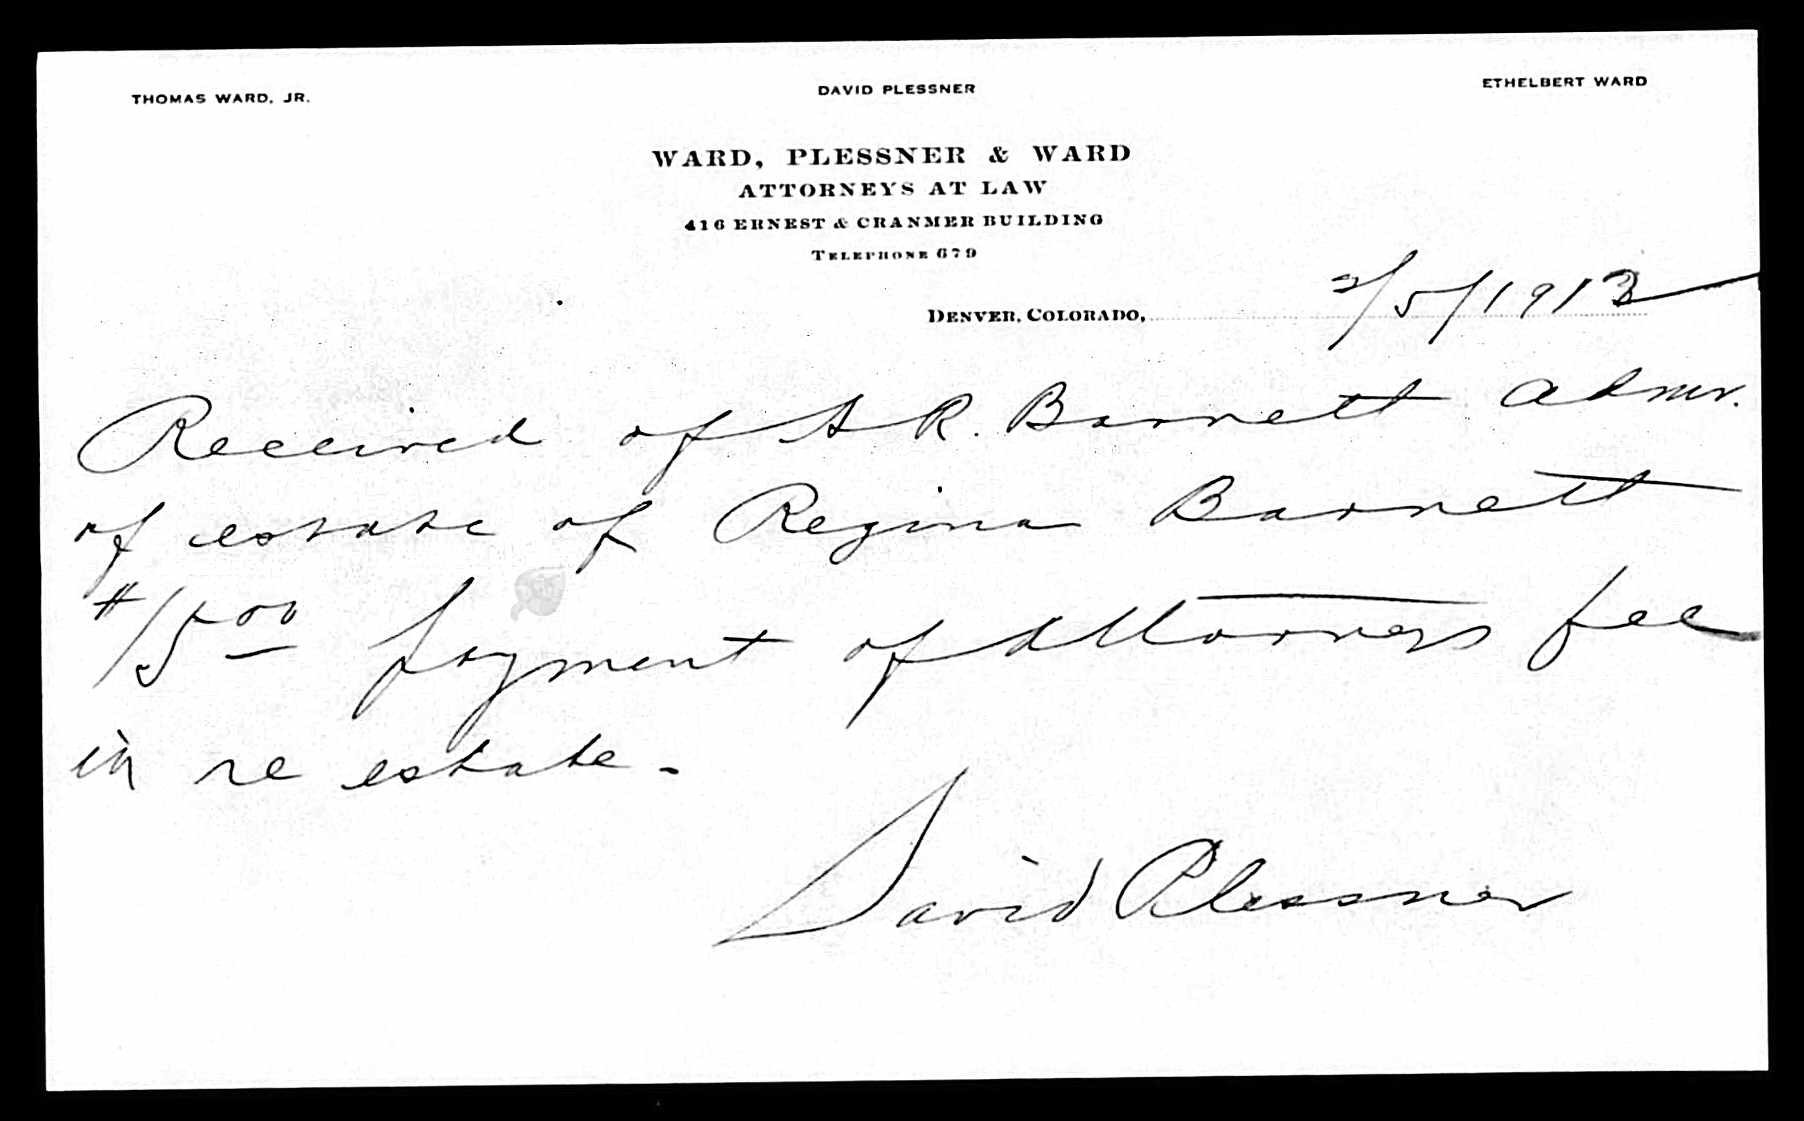 THOMAS WARD, JR. DAVID PLESSNER ETHELBERT WARD
WARD, PLESSNER & WARD
ATTORNEYS AT LAW
416 ERNEST & CRANMER BUILDING
TELEPHONE 679
DENVER, COLORADO, 2/5/1913
Received of A R. Barnett Admr.
of estate of Regina Barnett
$15.00 payment of Attorneys fee
in re estate.
David Plessner